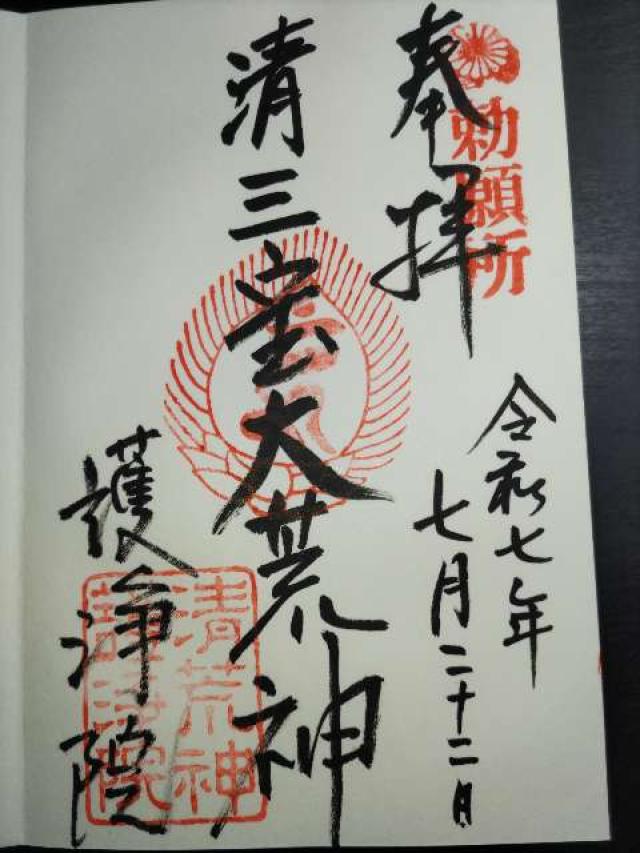 勅願所
奉拝
令和七年
七月二十二日
清三宝大荒神
護浄院
清荒神
護浄院